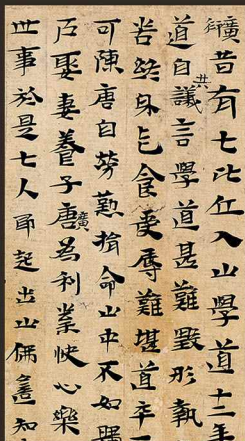 昔有七比丘入山學道十二年
道自共議言學道甚難毀形執
苦終身乞食受辱難堪道卒
可陳唐自勞懃捐命山中不如歸
戶娶妻養子唐廣為利業快心樂
世事於是七人即起出山佛知